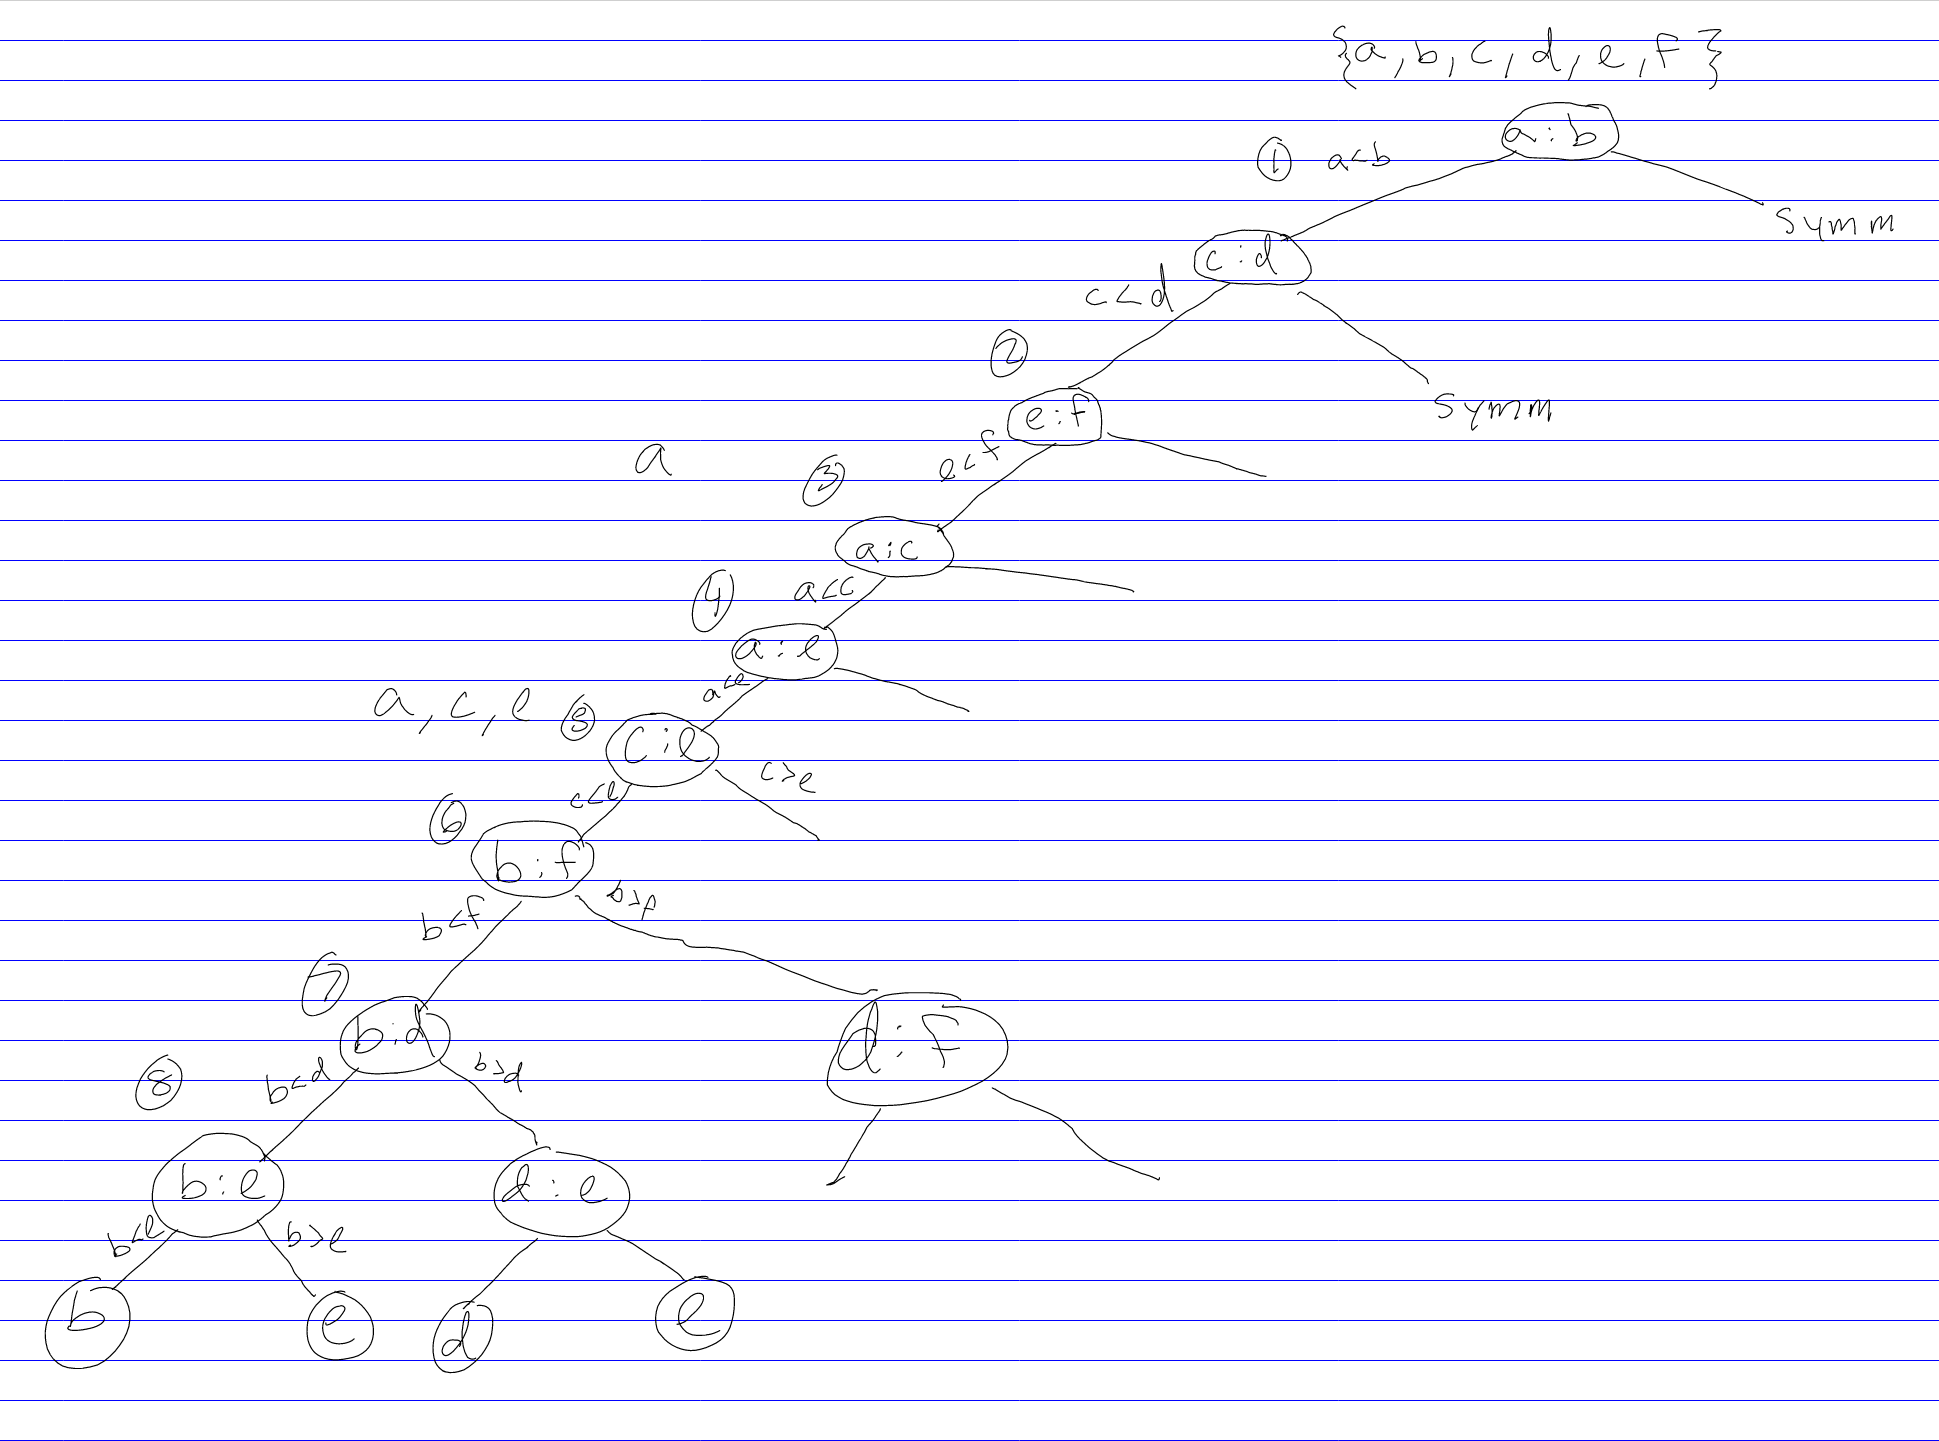 {a, b, c, d, e, f}
a : b
① a<b
symm
c : d
c < d
symm
②
e : f
e < f
a
③
a : c
④ a<c
a : e
a<e
a, c, e ⑤
c : e
c>e
c<e
⑥
b : f
b>f
b<f
⑦
b : d
d : f
b>d
b<d
⑧
b : e
d : e
b<e
b>e
b
e
d
e